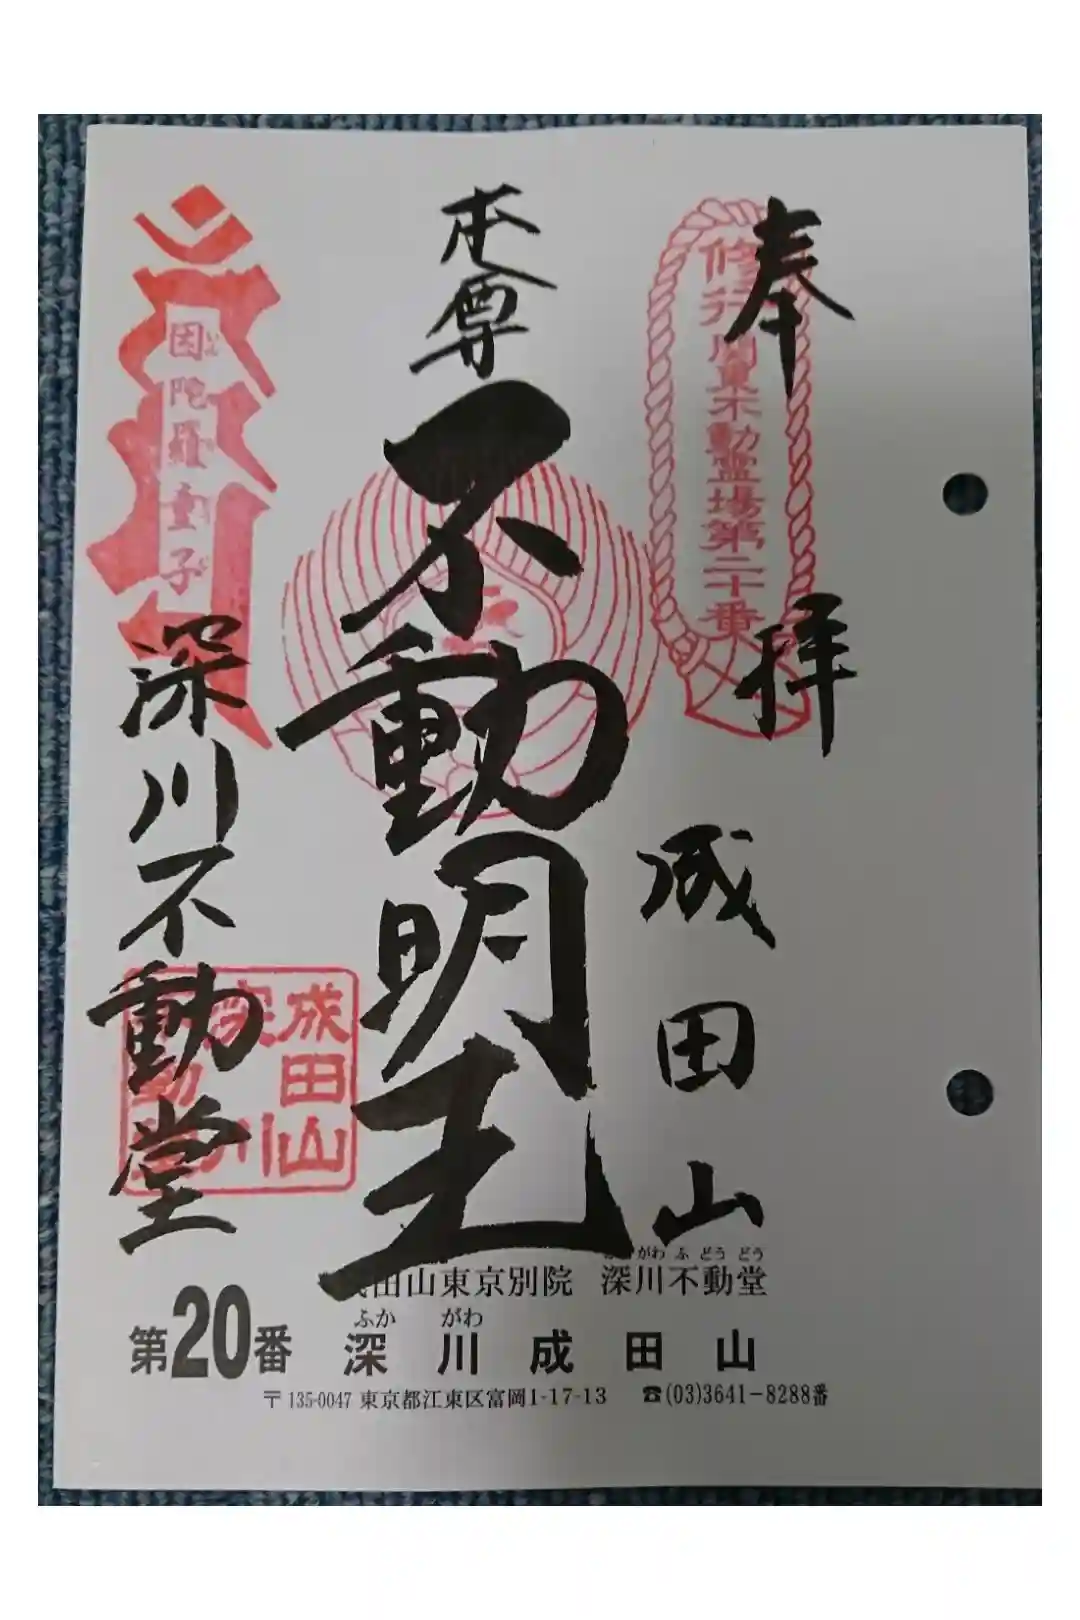 奉拝
修行関東不動霊場第二十番
成田山
本尊
不動明王
因陀羅童子
深川不動堂
成田山
深川
がわ ふ どう どう
田山東京別院 深川不動堂
ふか がわ
第20番 深川成田山
〒135-0047 東京都江東区富岡1-17-13 ☎(03)3641-8288番